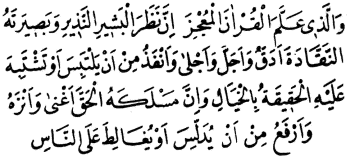 وَالَّذِى عَلَّمَ الْقُرْاٰنَ الْمُعْجِزَ اِنَّ نَظَرَ الْبَشِيرِ النَّذِيرِ وَبَصِيرَتَهُ
النَّقَّادَةَ اَدَقُّ وَاَجَلُّ وَاَجْلٰى وَاَنْفَذُ مِنْ اَنْ يَلْتَبِسَ اَوْ تَشْتَبِهَ
عَلَيْهِ الْحَقِيقَةُ بِالْخَيَالِ وَاِنَّ مَسْلَكَهُ الْحَقَّ اَغْنٰى وَاَنْزَهُ
وَاَرْفَعُ مِنْ اَنْ يُدَلِّسَ اَوْ يُغَالِطَ عَلَى النَّاسِ